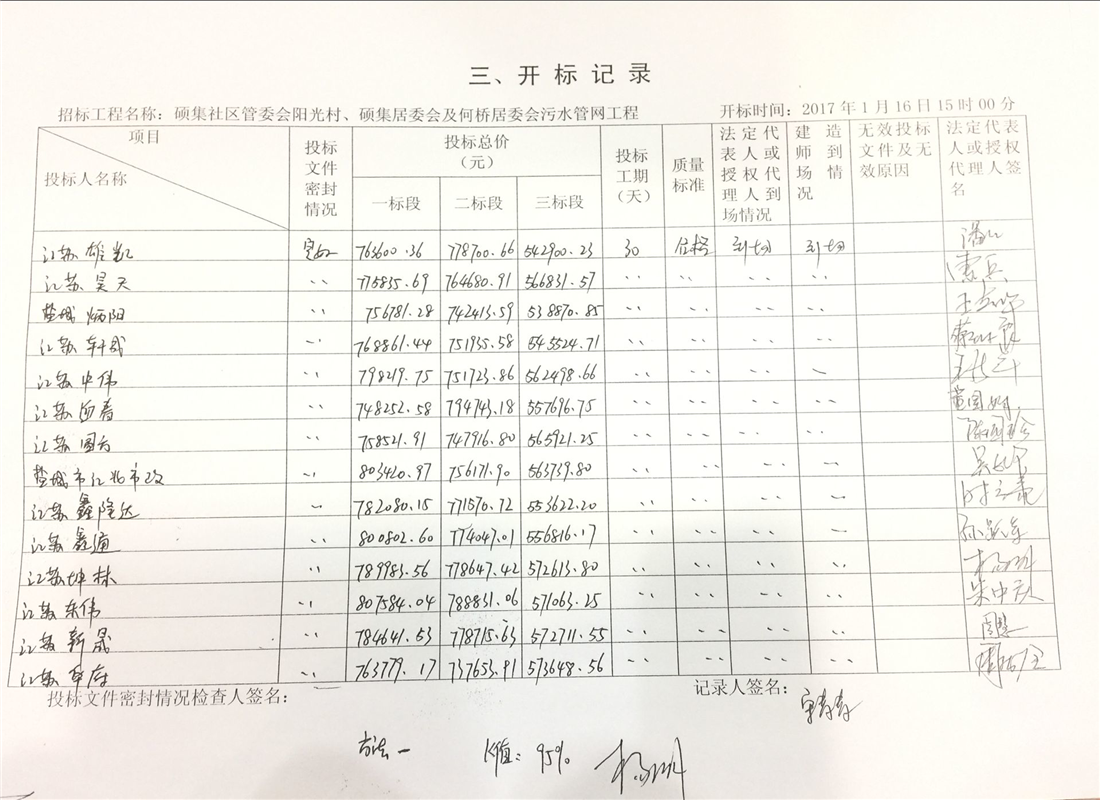 三、开标记录
招标工程名称：硕集社区管委会阳光村、硕集居委会及何桥居委会污水管网工程 开标时间：2017年1月16日15时00分
项目 投标人名称 投标文件密封情况 投标总价（元） 一标段 二标段 三标段 投标工期（天） 质量标准 法定代表人或授权代理人到场情况 建造师到场情况 无效投标文件及无效原因 法定代表人或授权代理人签名
江苏雄凯 完好 763600.36 778700.66 542900.23 30 合格 到场 到场
江苏昊天 〃 775835.69 764680.91 566831.57 〃 〃 〃 〃
盐城炳阳 〃 756781.28 742413.59 538870.85 〃 〃 〃 〃
江苏轩成 〃 768861.44 751935.58 545524.71 〃 〃 〃 〃
江苏中伟 〃 798219.75 751723.86 562498.66 〃 〃 〃 〃
江苏 〃 748252.58 794743.18 557696.75 〃 〃 〃 〃
江苏国方 〃 758521.91 747916.80 565921.25 〃 〃 〃 〃
盐城市江北市政 〃 803420.97 756171.90 563739.80 〃 〃 〃 〃
江苏鑫隆达 〃 782080.15 771570.72 553622.20 〃 〃 〃 〃
江苏鑫通 〃 800802.60 774047.01 556816.17 〃 〃 〃 〃
江苏坤林 789983.56 778647.42 572613.80 〃 〃 〃 〃
江苏东伟 〃 807584.04 788831.06 571063.25 〃 〃 〃 〃 朱中庆
江苏新晟 〃 784641.53 778715.63 572711.55 〃 〃 〃 〃
江苏 〃 763779.17 737653.91 573648.56 〃 〃 〃 〃
投标文件密封情况检查人签名： 记录人签名：
方法一 K值：95%